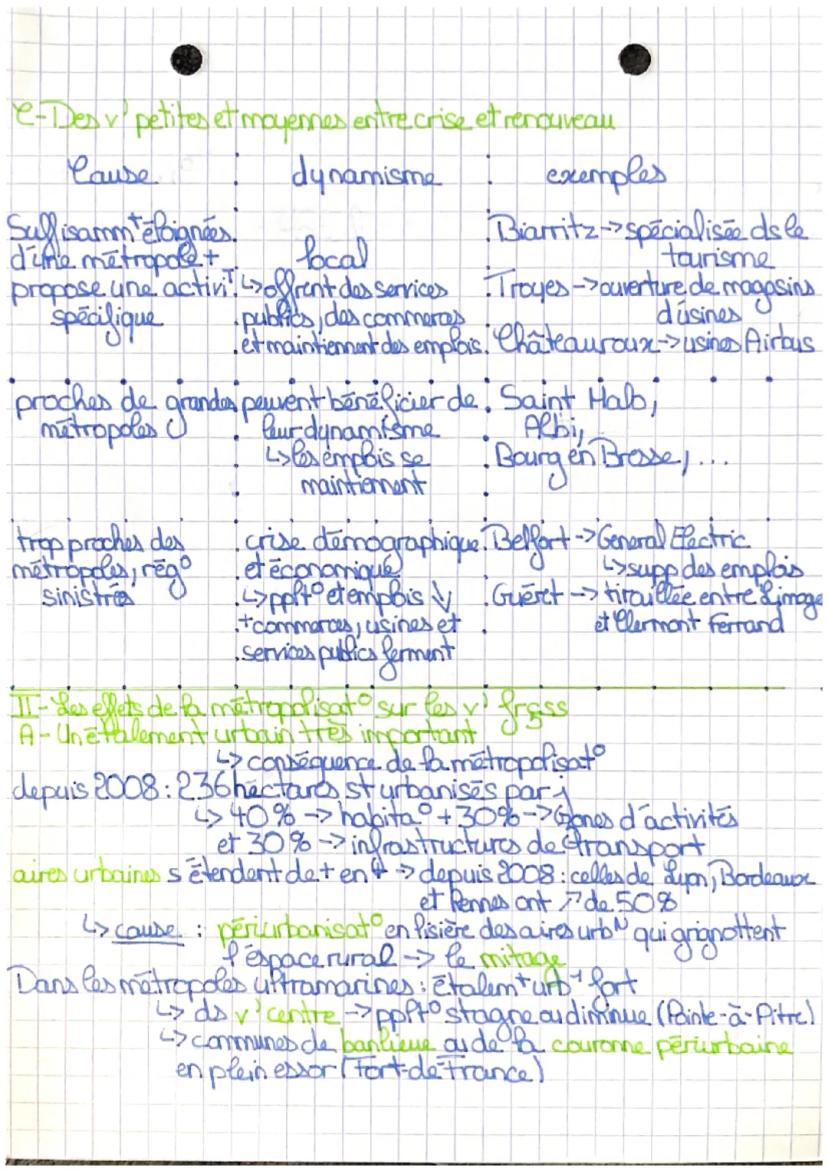 C-Des v' petites et moyennes entre crise et renouveau
Cause dynamisme exemples
Suffisammt éloignées
d'une métropole +
propose une activiT
spécifique
local
↳ offrent des services
publics, des commerces
et maintiennent des emplois.
Biarritz -> spécialisée ds le
tourisme
Troyes -> ouverture de magasins
d'usines
Châteauroux -> usines Airbus
proches de grandes
métropoles
peuvent bénéficier de
leur dynamisme
↳ les emplois se
maintiennent
Saint Malo,
Albi,
Bourg en Bresse, ...
trop proches des
métropoles, rég°
sinistrés
crise démographique
et économique
↳ pplt° et emplois ↓
+ commerces, usines et
services publics ferment
Belfort -> General Electric
↳ supp des emplois
Guéret -> tiraillée entre Limoge
et Clermont Ferrand
II - Les effets de la métropolisat° sur les v' frçses
A - Un étalement urbain très important
↳ conséquence de la métropolisat°
depuis 2008 : 236 hectares st urbanisés par j
↳ 40% -> habita° + 30% -> Zones d'activités
et 30% -> infrastructures de transport
aires urbaines s'étendent de + en + -> depuis 2008 : celles de Lyon, Bordeaux
et Rennes ont ↗ de 50%
↳ cause : périurbanisat° en lisière des aires urbN qui grignottent
l'espace rural -> le mitage
Dans les métropoles ultramarines : étalemt urb+ fort
↳ ds v' centre -> pplt° stagne ou diminue (Pointe-à-Pitre)
↳ communes de banlieue ou de la couronne périurbaine
en plein essor (Fort-de-France)